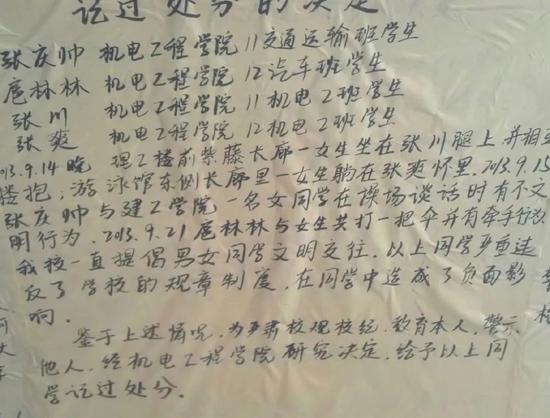 记过处分的决定
张庆帅 机电工程学院11交通运输班学生
扈林林 机电工程学院12汽车班学生
张川 机电工程学院11机电2班学生
张爽 机电工程学院12机电2班学生
2013.9.14晚 理工楼前紫藤长廊一女生坐在张川腿上,并相互
搂抱;游泳馆东侧长廊里一女生躺在张爽怀里.2013.9.15
张庆帅与建工学院一名女同学在操场谈话时有不文
明行为.2013.9.21扈林林与女生共打一把伞并有牵手行为
我校一直提倡男女同学文明交往.以上同学严重违
反了学校的规章制度,在同学中造成了负面影
响.
鉴于上述情况,为严肃校规校纪,教育本人,警示
他人,经机电工程学院研究决定,给予以上同
学记过处分.